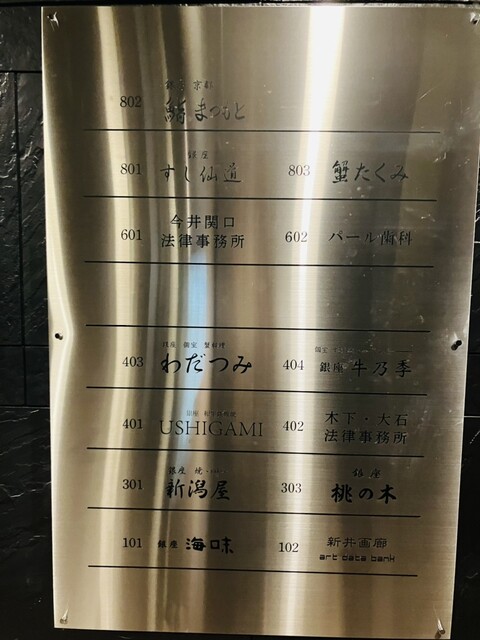 銀座 京都
802 鮨まつもと
銀座
801 すし仙道
803 蟹たくみ
今井関口
601 法律事務所
602 パール歯科
銀座 個室 蟹料理
403 わだつみ
個室
404 銀座 牛乃季
銀座
401 USHIGAMI
木下・大石
402 法律事務所
銀座 焼
301 新潟屋
銀座
303 桃の木
101 銀座 海味
102 新井画廊
art data bank